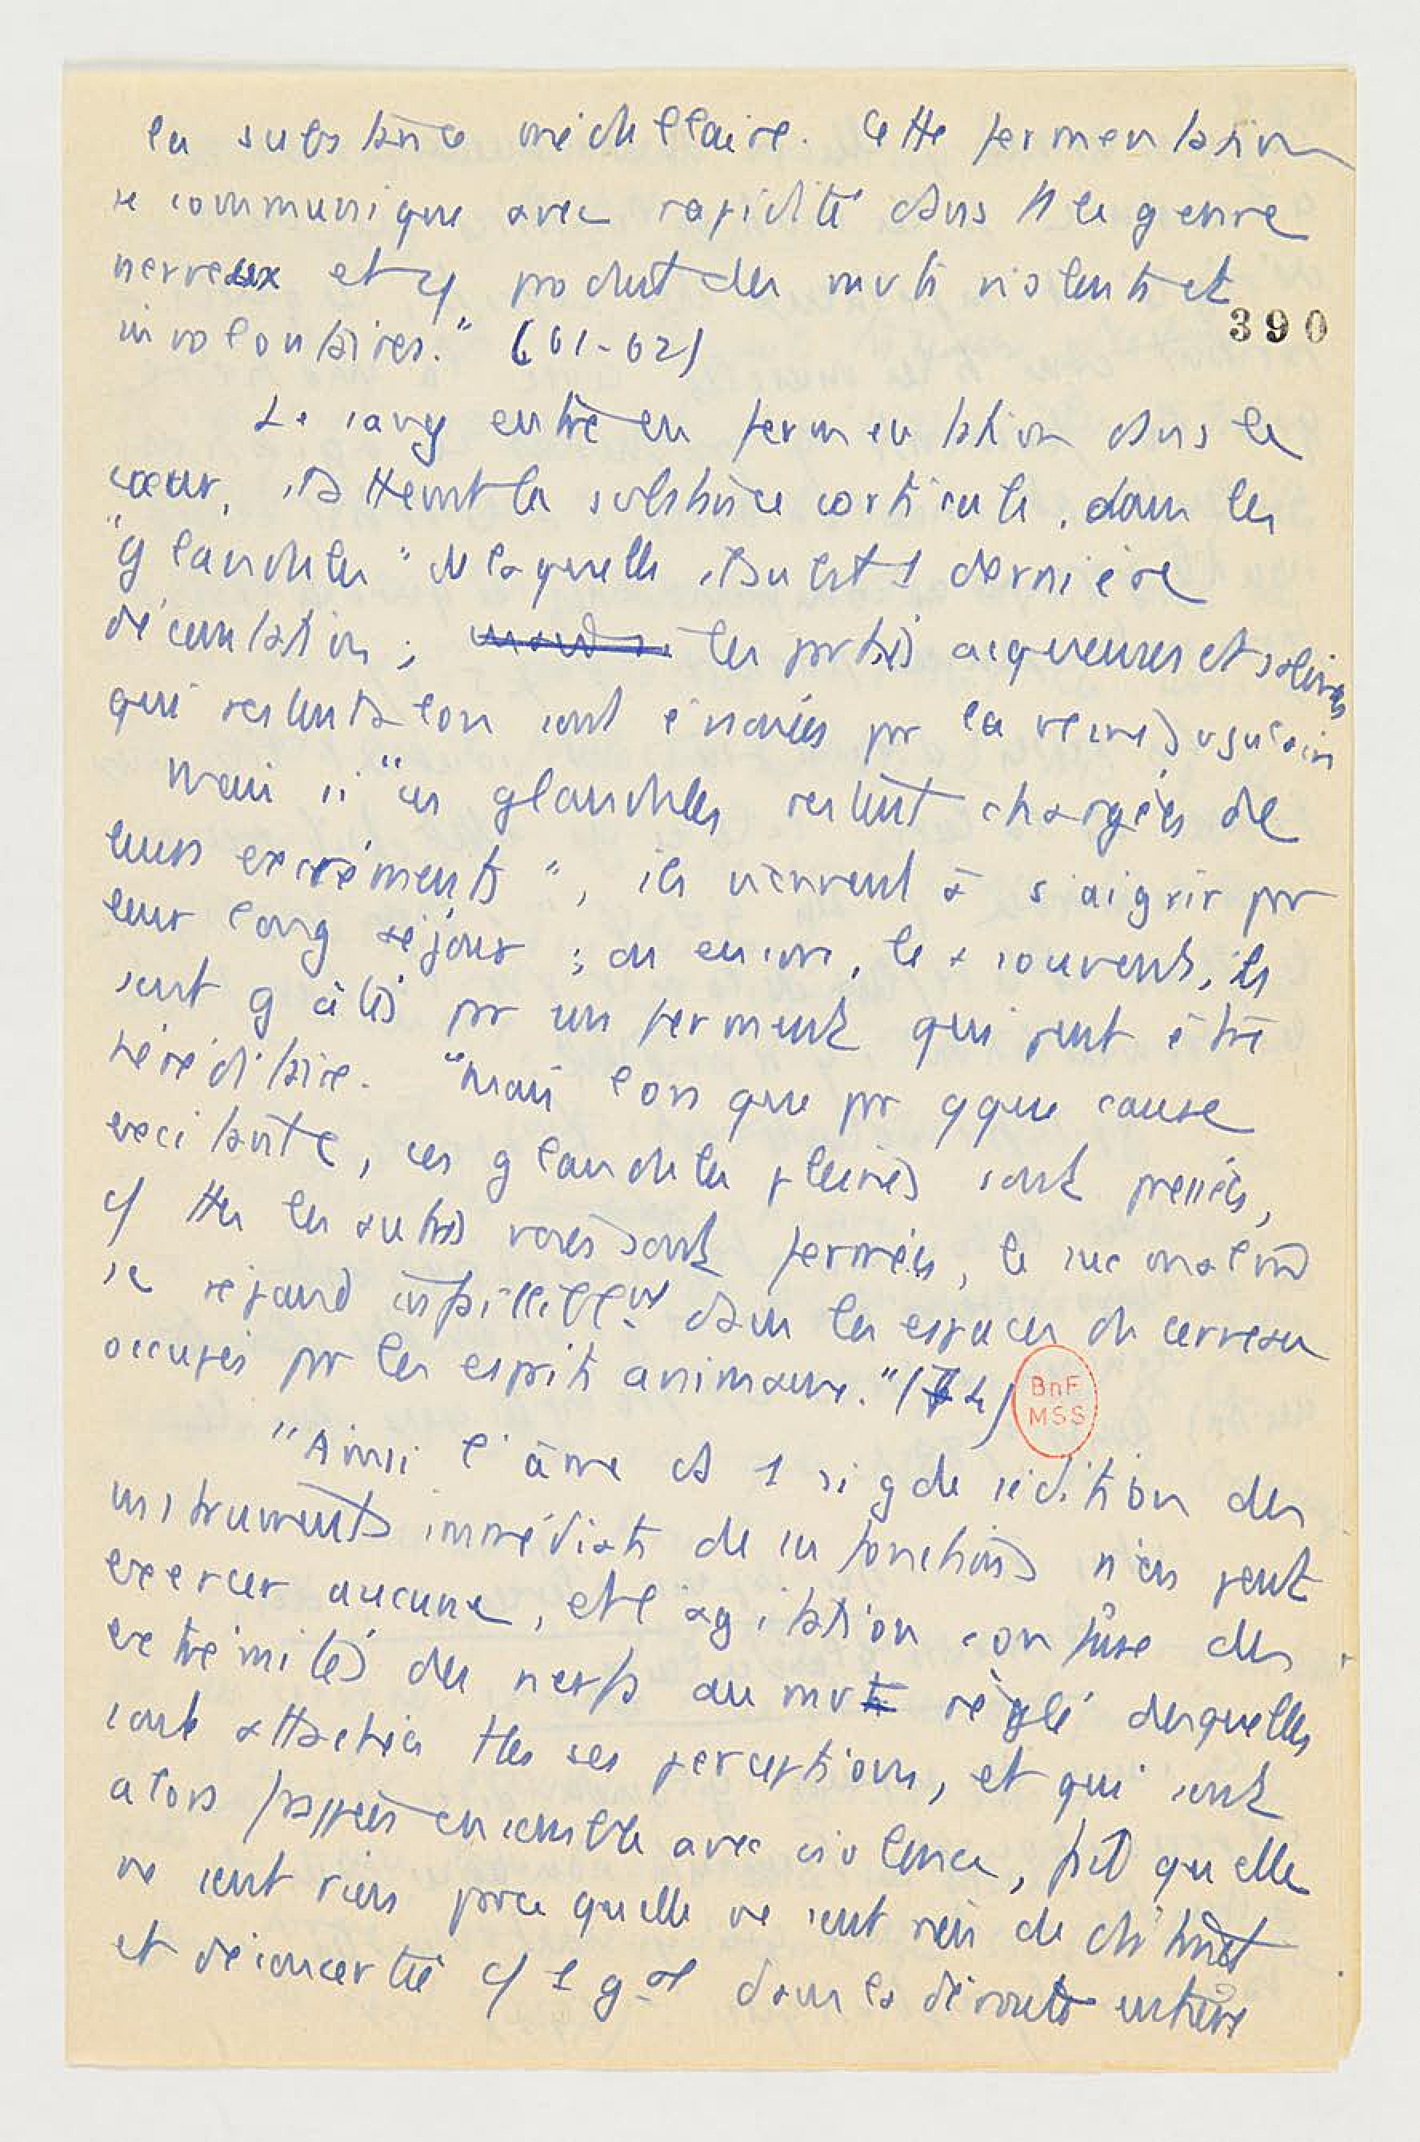 la substance médullaire. Cette fermentation
se communique avec rapidité dans tt le genre
nerveux et y produit des mvts violents et
390
involontaires." (61-62)
Le sang entre en fermentation dans le
cœur, atteint la substance corticale, dans les
"glandules" de laquelle il subit 1 dernière
décantation; les parties acqueuses et salines
qui restent alors sont évacuées par la veine jugulaire
Mais si "ces glandules restent chargées de
leurs excréments", ils viennent à s'aigrir par
leur long séjour; ou encore, le + souvent, ils
sont gâtés par un ferment qui peut être
héréditaire. "Mais lors que par qque cause
excitante, ces glandules pleines sont pressées,
c/ ttes les autres voies sont fermées, le suc malin
se répand dans les espaces du cerveau
occupés par les esprits animaux." (74)
BnF
MSS
"Ainsi l'âme ds 1 si gde sédition des
instruments immédiats de ses fonctions n'en peut
exercer aucune, et l'agitation confuse des
extrémités des nerfs au mvt réglé desquelles
sont attachées ttes ses perceptions, et qui sont
alors frappées ensemble avec violence, fait qu'elle
ne sent rien parce qu'elle ne sent rien de distinct
et déconcerté c/ 1 gal dans la déroute entière